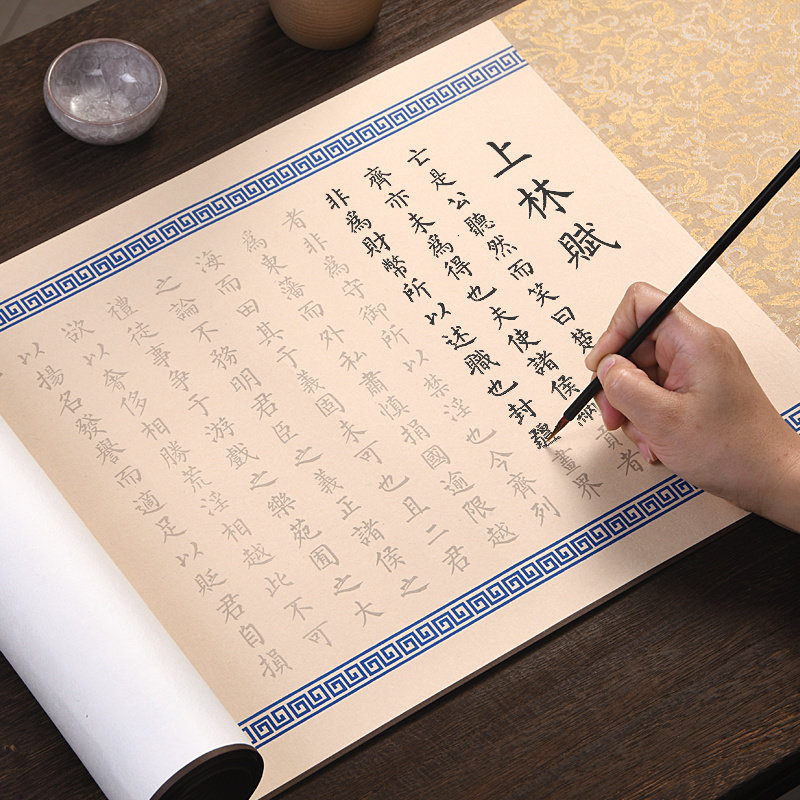 上林賦
亡是公聽然而笑曰楚
齊亦未為得也夫使諸侯納貢者
非為財幣所以述職也封疆畫界
者非為守御所以禁淫也今齊列
為東藩而外私肅慎捐國逾限越
海而田其于義固未可也且二君
之論不務明君臣之義正諸侯之
禮徒事爭于游戲之樂苑囿之大
欲以奢侈相勝荒淫相越此不可
以揚名發譽而適足以貶君自損